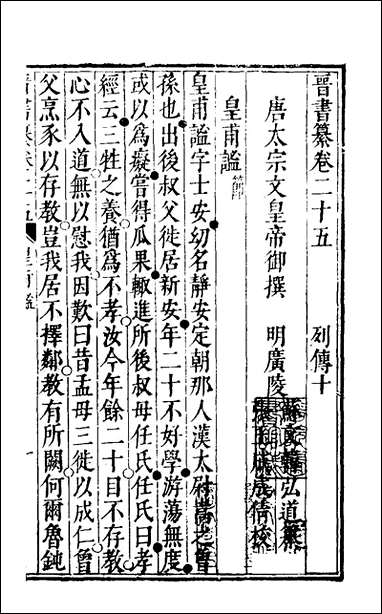 晉書纂卷二十五　列傳十
唐太宗文皇帝御撰　明廣陵　弘道纂
成倩校
皇甫謐
皇甫謐字士安幼名靜安定朝那人漢太尉嵩之曾
孫也出後叔父徙居新安年二十不好學游蕩無度
或以為癡嘗得瓜果輙進所後叔母任氏任氏曰孝
經云三牲之養猶為不孝汝今年餘二十目不存教
心不入道無以慰我因歎曰昔孟母三徙以成仁曾
父烹豕以存教豈我居不擇鄰教有所闕何爾魯鈍